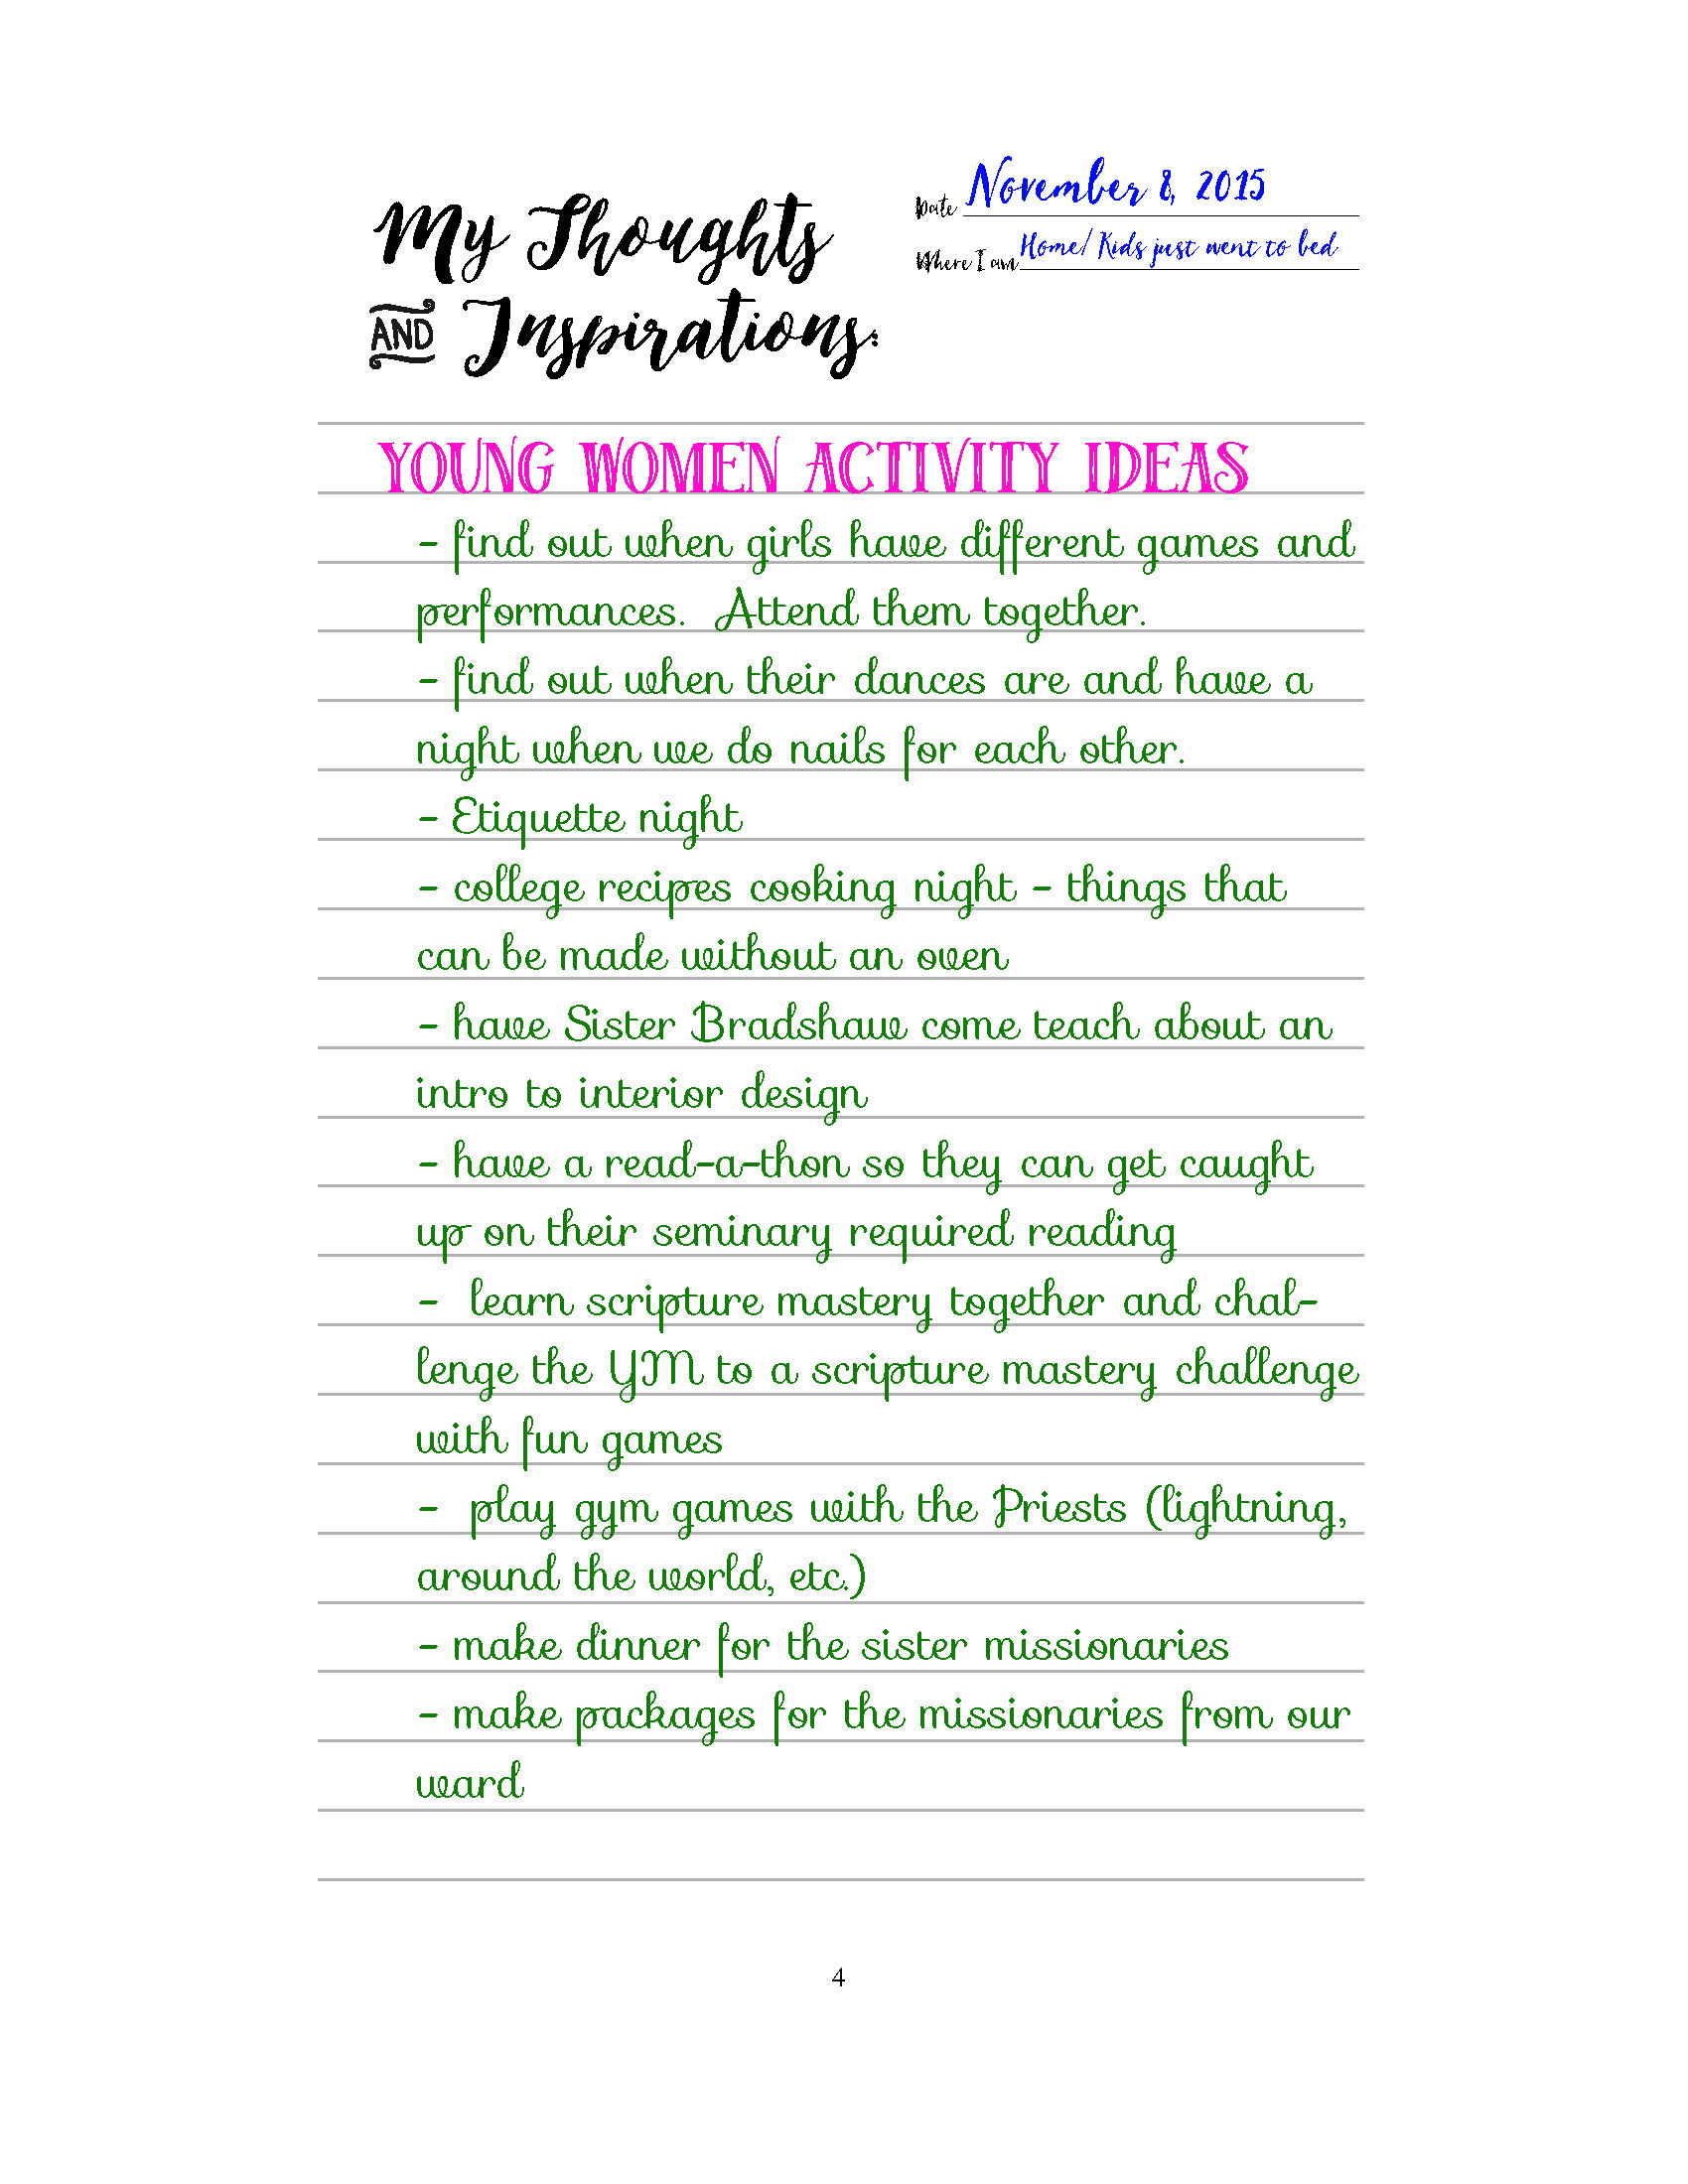 My Thoughts
AND Inspirations:
Date November 8, 2015
Where I am Home/ Kids just went to bed
YOUNG WOMEN ACTIVITY IDEAS
- find out when girls have different games and
performances.  Attend them together.
- find out when their dances are and have a
night when we do nails for each other.
- Etiquette night
- college recipes cooking night - things that
can be made without an oven
- have Sister Bradshaw come teach about an
intro to interior design
- have a read-a-thon so they can get caught
up on their seminary required reading
-  learn scripture mastery together and chal-
lenge the YM to a scripture mastery challenge
with fun games
-  play gym games with the Priests (lightning,
around the world, etc.)
- make dinner for the sister missionaries
- make packages for the missionaries from our
ward
4